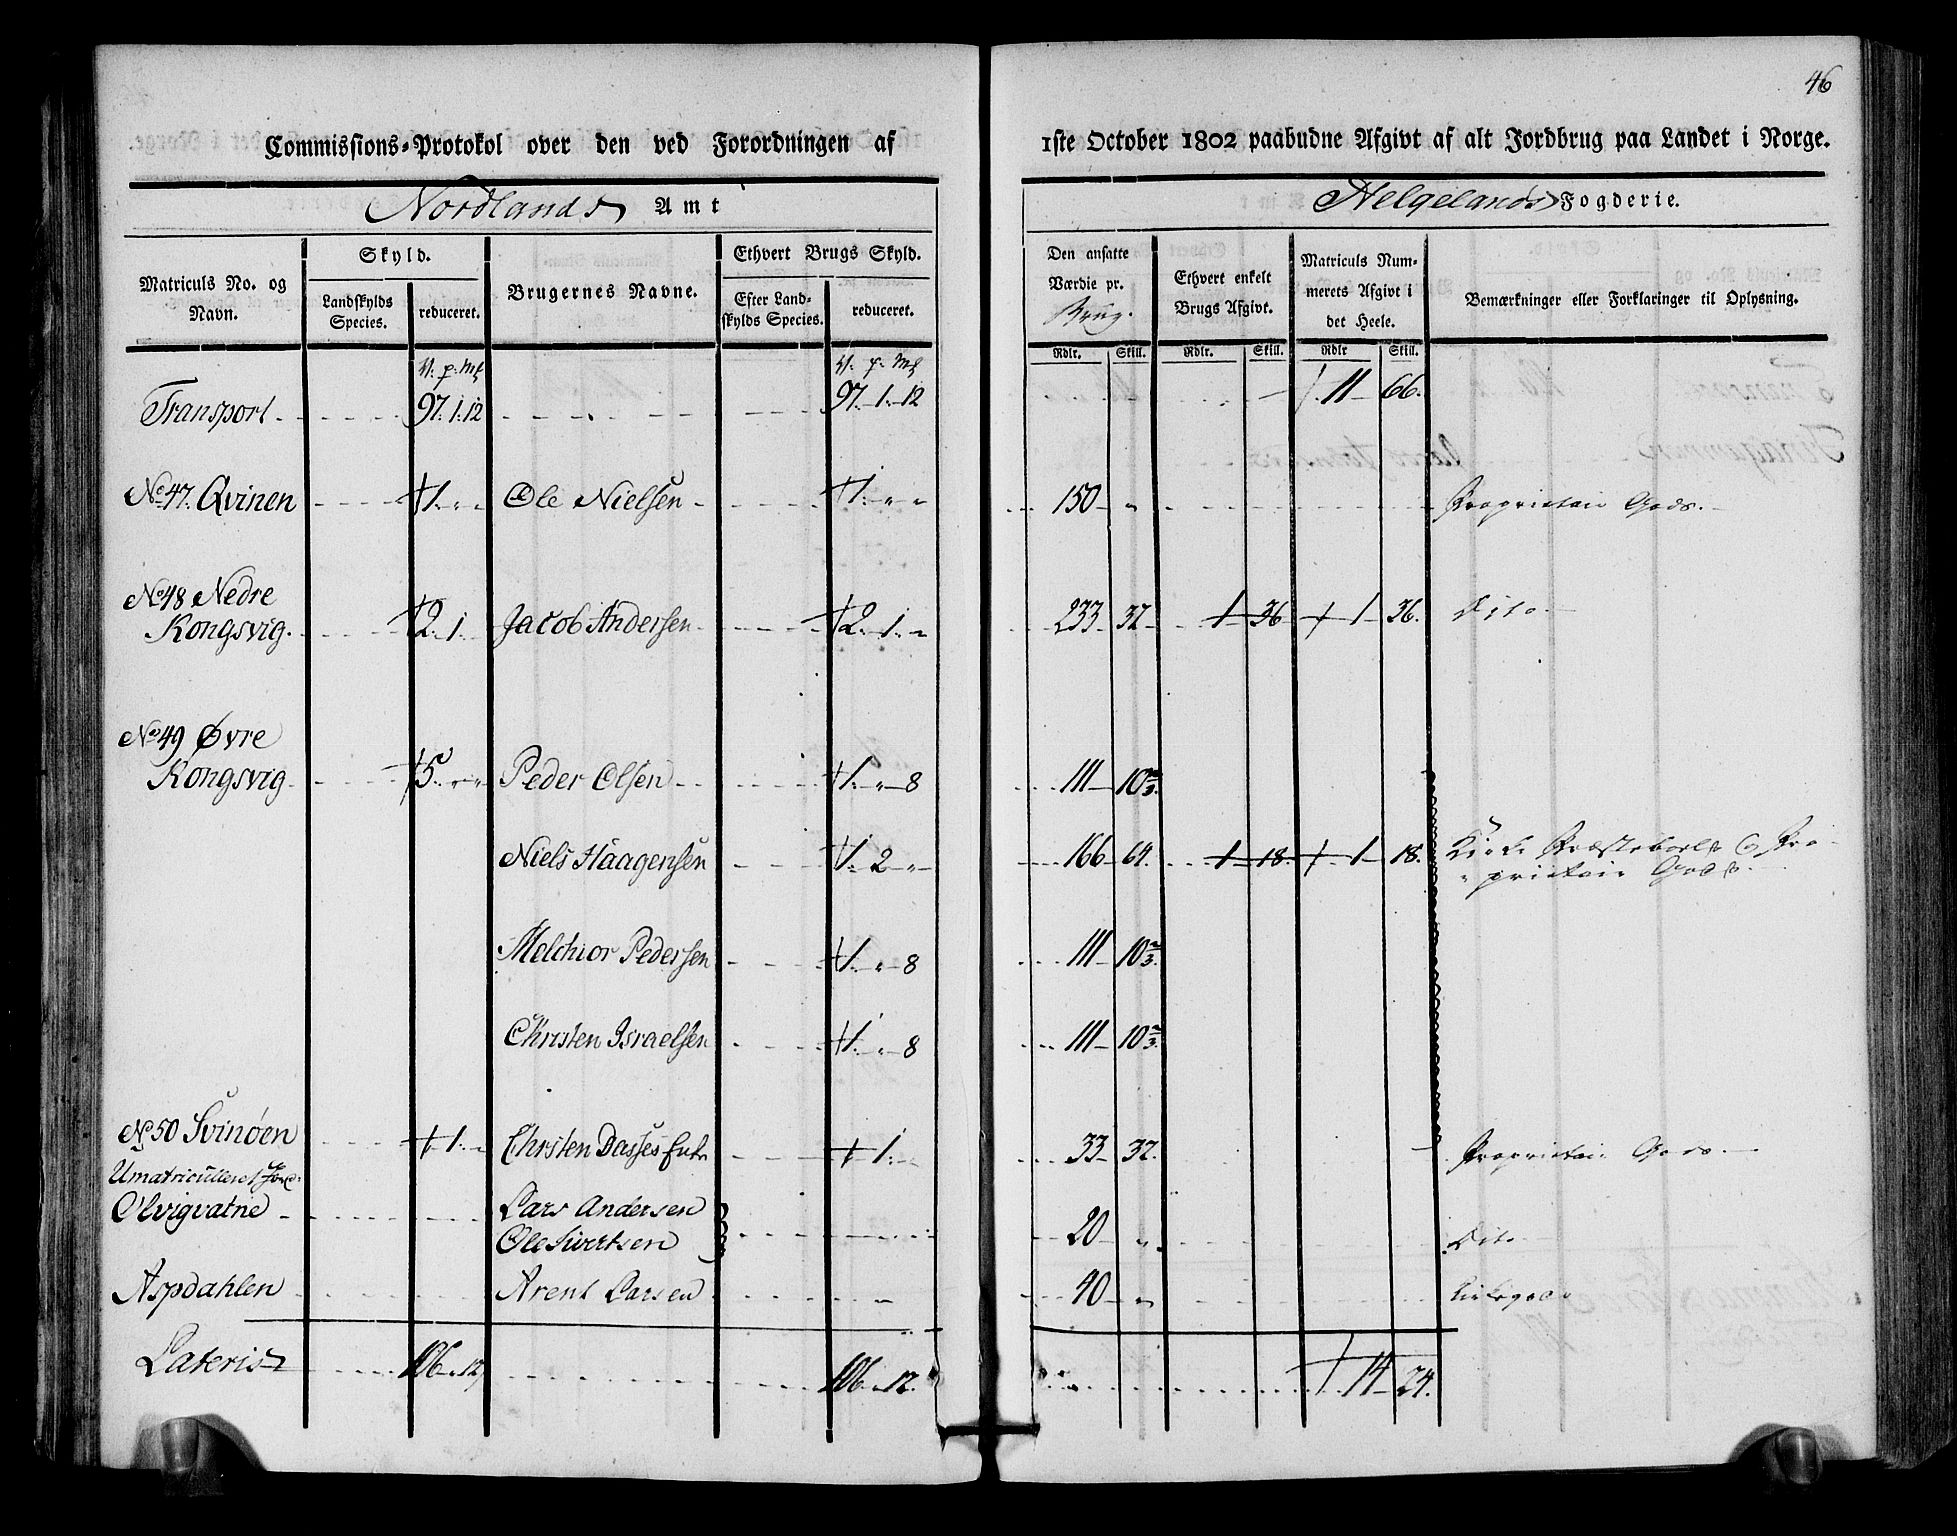 46
Commissions-Protokol over den ved Forordningen af 1ste October 1802 paabudne Afgivt af alt Jordbrug paa Landet i Norge.
Nordlands Amt Helgelands Fogderie.
Matriculs No. og Navn. Skyld. Landskylds Species. reduceret. Brugernes Navne. Ethvert Brugs Skyld. Efter Landskylds Species. reduceret. Den ansatte Værdie pr. Brug. Rdlr. Skill. Ethvert enkelt Brugs Afgivt. Rdlr. Skill. Matriculs Nummerets Afgivt i det Heele. Rdlr Skill. Bemærkninger eller Forklaringer til Oplysning.
V. p. Mk V. p. Mk
Transport 97. 1. 12 97. 1. 12 11 66.
No 47. Qvinen 1. " " Ole Nielsen 1. " " 150 " Proprietair Gods.
No 48 Nedre
Kongsvig. 2. 1. Jacob Andersen 2. 1. " 233 32 1 36 1 36. Dito
No 49 Øvre
Kongsvig 5. " " Peder Olsen 1. " 8 111 10 2/3.
Niels Haagensen 1. 2 " 166 64. 1 18. 1 18. Kirke Præstebords & Pro-
prietair Gods.
Melchior Pedersen 1. " 8 111 10 2/3.
Christen Israelsen 1. " 8 111 10 2/3.
No 50 Svinøen 1. Christen Dasses Enke 1. 33 32. Proprietair Gods.
Umatriculleret Jord:
Olvigvatne Lars Andersen
Ole Sivertsen 20 " Dito
Aspdahlen Arent Larsen " 40 "
Lateris 106. " 12 106. " 12. 14 24.